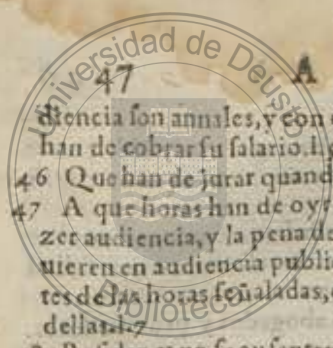 Universidad de Deusto
Biblioteca
47 A
diencia son annales, y con
han de cobrar su salario. l.
46 Que han de jurar quand
47 A que horas han de oyr
zer audiencia, y la pena de
uieren en audiencia public
tes de las horas señaladas,
dellas. l. 7